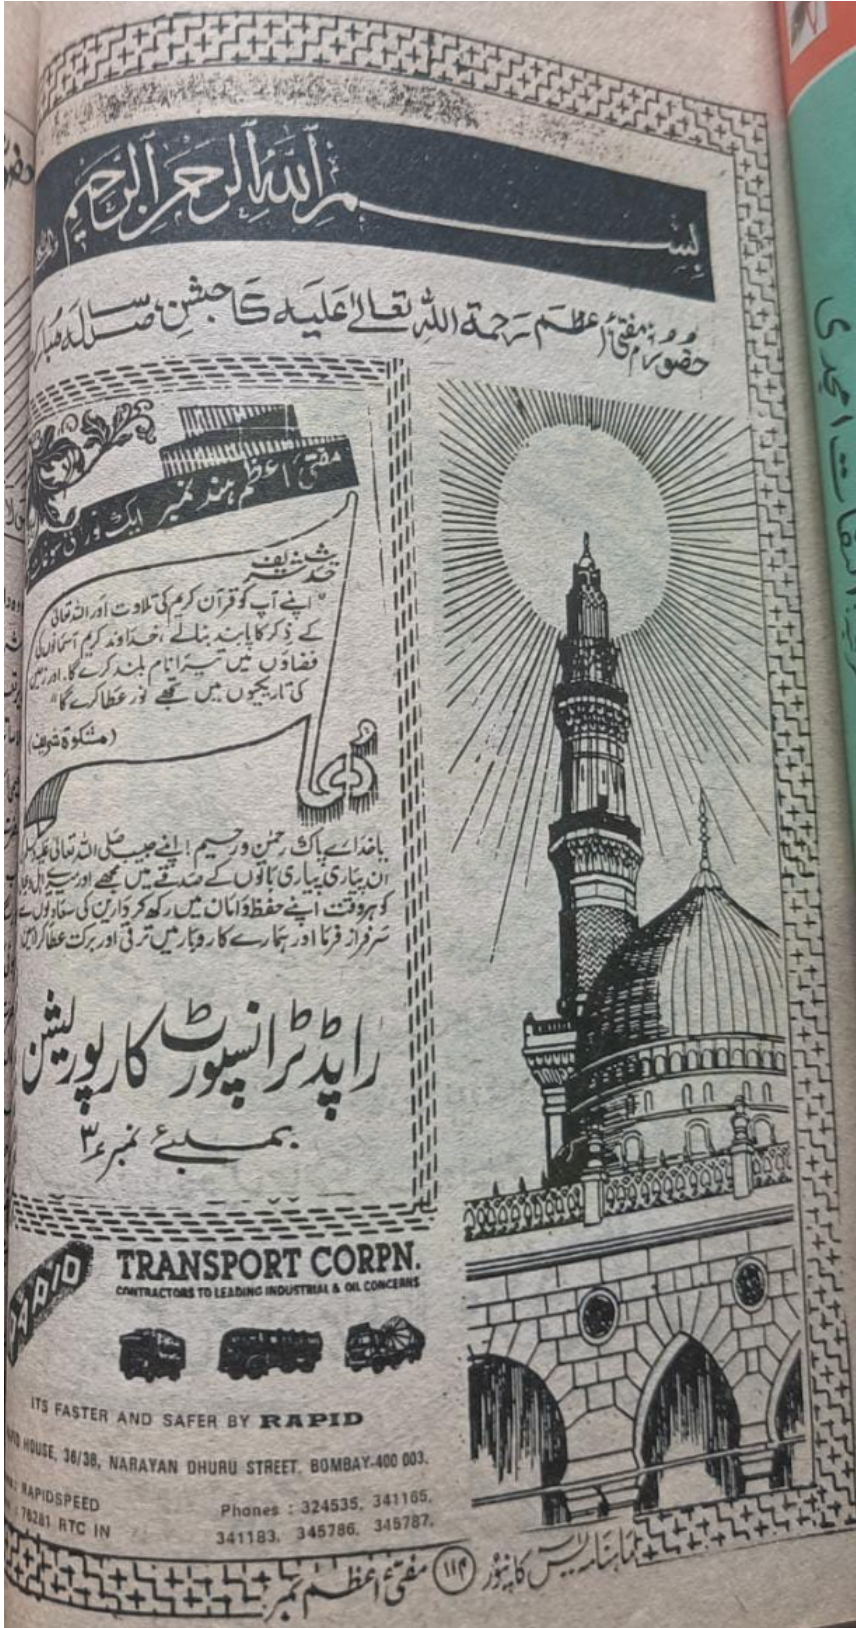 بِسْمِ اللهِ الرَّحْمٰنِ الرَّحِيْمِ
حضور مفتئ اعظم رحمۃ اللہ تعالےٰ علیہ کا جشنِ صد سالہ مبارک
مفتئ اعظم ہند نمبر ایک نوری سوغات
حدیث شریف
"اپنے آپ کو قرآن کریم کی تلاوت اور اللہ تعالیٰ
کے ذکر کا پابند بنالے، خداوند کریم آسمانوں کی
فضاؤں میں تیرا نام بلند کرے گا۔ اور زمین
کی تاریکیوں میں تجھے نور عطا کرے گا"
(مشکوٰۃ شریف)
دُعا
یا خدائے پاک رحمٰن و رحیم! اپنے حبیب صلی اللہ تعالیٰ علیہ وسلم
ان پیاری پیاری باتوں کے صدقے میں مجھے اور میرے اہل و
کو ہر وقت اپنے حفظ و امان میں رکھ کر دارین کی سعادتوں سے
سرفراز فرما اور ہمارے کاروبار میں ترقی اور برکت عطا کر آمین
راپڈ ٹرانسپورٹ کارپوریشن
بمبئی نمبر ۳
RAPID
TRANSPORT CORPN.
CONTRACTORS TO LEADING INDUSTRIAL & OIL CONCERNS
ITS FASTER AND SAFER BY RAPID
HOUSE, 36/38, NARAYAN DHURU STREET, BOMBAY-400 003.
: RAPIDSPEED
: 76281 RTC IN
Phones : 324535, 341165,
341183, 345786, 345787.
ماہنامہ کانپور ۱۱۴ مفتئ اعظم نمبر